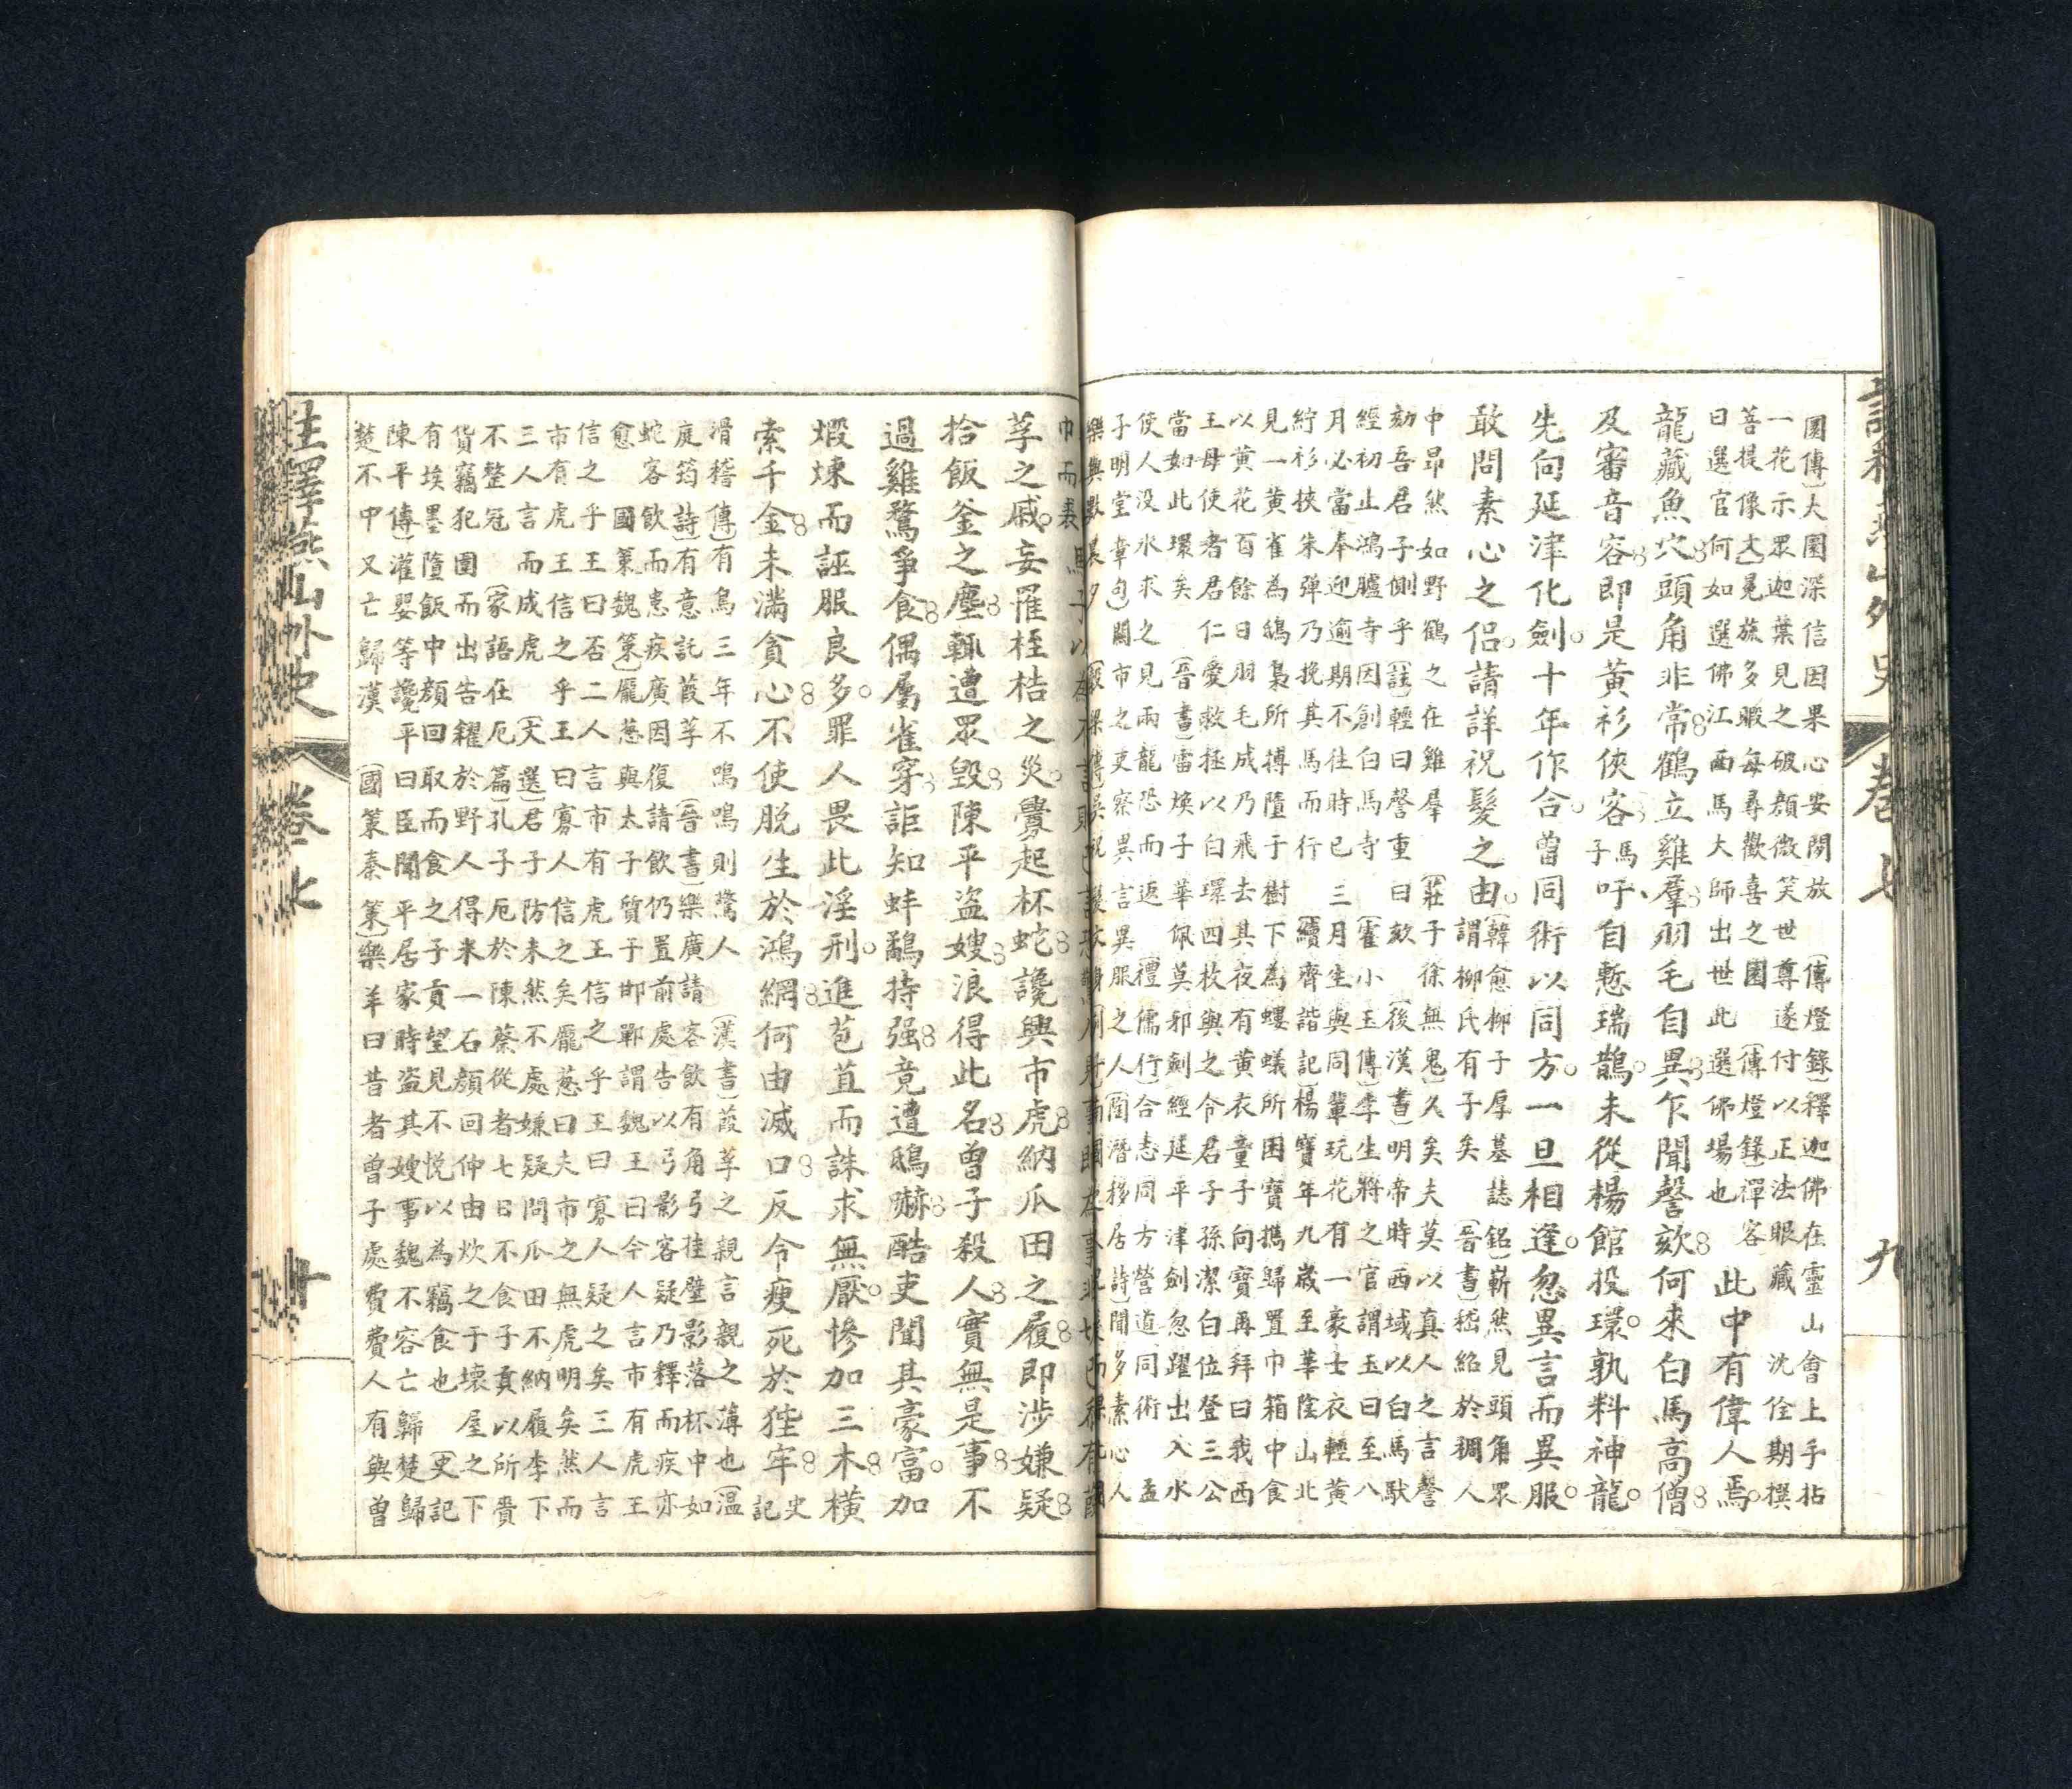 園傳〕大園深信因果心安閒放　〔傳燈錄〕釋迦佛在靈山會上手拈
一花示眾迦葉見之破顏微笑世尊遂付以正法眼藏　沈佺期撰
菩提像文〕冕旒多暇每尋歡喜之園　〔傳燈錄〕禪客
曰選官何如選佛江西馬大師出世此選佛場也
此中有偉人焉。
龍藏魚穴頭角非常鶴立雞羣羽毛自異乍聞謦欬何來白馬高僧
及審音容即是黃衫俠客子馬吁自慙瑞鵲。未從楊館投環。孰料神龍。
先向延津化劍。十年作合。曾同術以同方。一旦相逢。忽異言而異服。
敢問素心之侶。請詳祝髮之由。
〔韓愈柳子厚墓誌銘〕嶄然見頭角眾
謂柳氏有子矣　〔晉書〕嵇紹於稠人
中昂然如野鶴之在雞羣　〔莊子徐無鬼〕久矣夫莫以真人之言謦
欬吾君子側乎〔註〕輕曰謦重曰欬　〔後漢書〕明帝時西域以白馬馱
經初止鴻臚寺因創白馬寺　〔霍小玉傳〕李生將之官謂玉曰至八
月必當奉迎逾期不往時已三月生與同輩玩花有一豪士衣輕黃
紵衫挾朱彈乃挽其馬而行　〔續齊諧記〕楊寶年九歲至華陰山北
見一黃雀為鴟梟所搏墮于樹下為螻蟻所困寶攜歸置巾箱中食
以黃花百餘日羽毛成乃飛去其夜有黃衣童子向寶再拜曰我西
王母使者君仁愛救拯以白環四枚與之令君子孫潔白位登三公
當如此環矣　〔晉書〕雷煥子華佩莫邪劍經延平津劍忽躍出入水
使人没水求之見兩龍恐而返　〔禮儒行〕合志同方營道同術　孟
子明堂章句〕關市之吏察異言異服之人　〔陶潛移居詩〕聞多素心人
樂與數晨夕
卷七
九
莩之戚。妄罹桎梏之災。釁起杯蛇讒興市虎納瓜田之履即涉嫌疑
拾飯釜之塵輒遭眾毀陳平盜嫂浪得此名曾子殺人實無是事不
過雞鶩爭食偶屬雀穿詎知蚌鷸持强竟遭鴟嚇酷吏聞其豪富。加
煆煉而誣服良多。罪人畏此淫刑。進苞苴而誅求無厭。慘加三木橫
索千金未滿貪心不使脱生於鴻網何由滅口反令瘐死於狴牢史記
滑稽傳〕有鳥三年不鳴鳴則驚人　〔漢書〕葭莩之親言親之薄也　〔温
庭筠詩〕有意託葭莩　〔晉書〕樂廣請客飲有角弓挂壁影落杯中如
蛇客飲而恚疾廣因復請飲仍置前處告以弓影客疑乃釋而疾亦
愈　國策魏策〕龐葱與太子質于邯鄲謂魏王曰今人言市有虎王
信之乎王曰否二人言市有虎王信之乎王曰寡人疑之矣三人言
市有虎王信之乎王曰寡人信之矣龐葱曰夫市之無虎明矣然而
三人言而成虎　〔文選〕君子防未然不處嫌疑問瓜田不納履李下
不整冠　〔家語在厄篇〕孔子厄於陳蔡從者七日不食子貢以所賷
貨竊犯圍而出告糴於野人得米一石顏回仲由炊之于壞屋之下
有埃墨墮飯中顔回取而食之子貢望見不悦以為竊食也　〔史記
陳平傳〕灌嬰等讒平曰臣聞平居家時盗其嫂事魏不容亡歸楚歸
楚不中又亡歸漢　〔國策秦策〕樂羊曰昔者曾子處費費人有與曾
註釋燕山外史
卷七
十